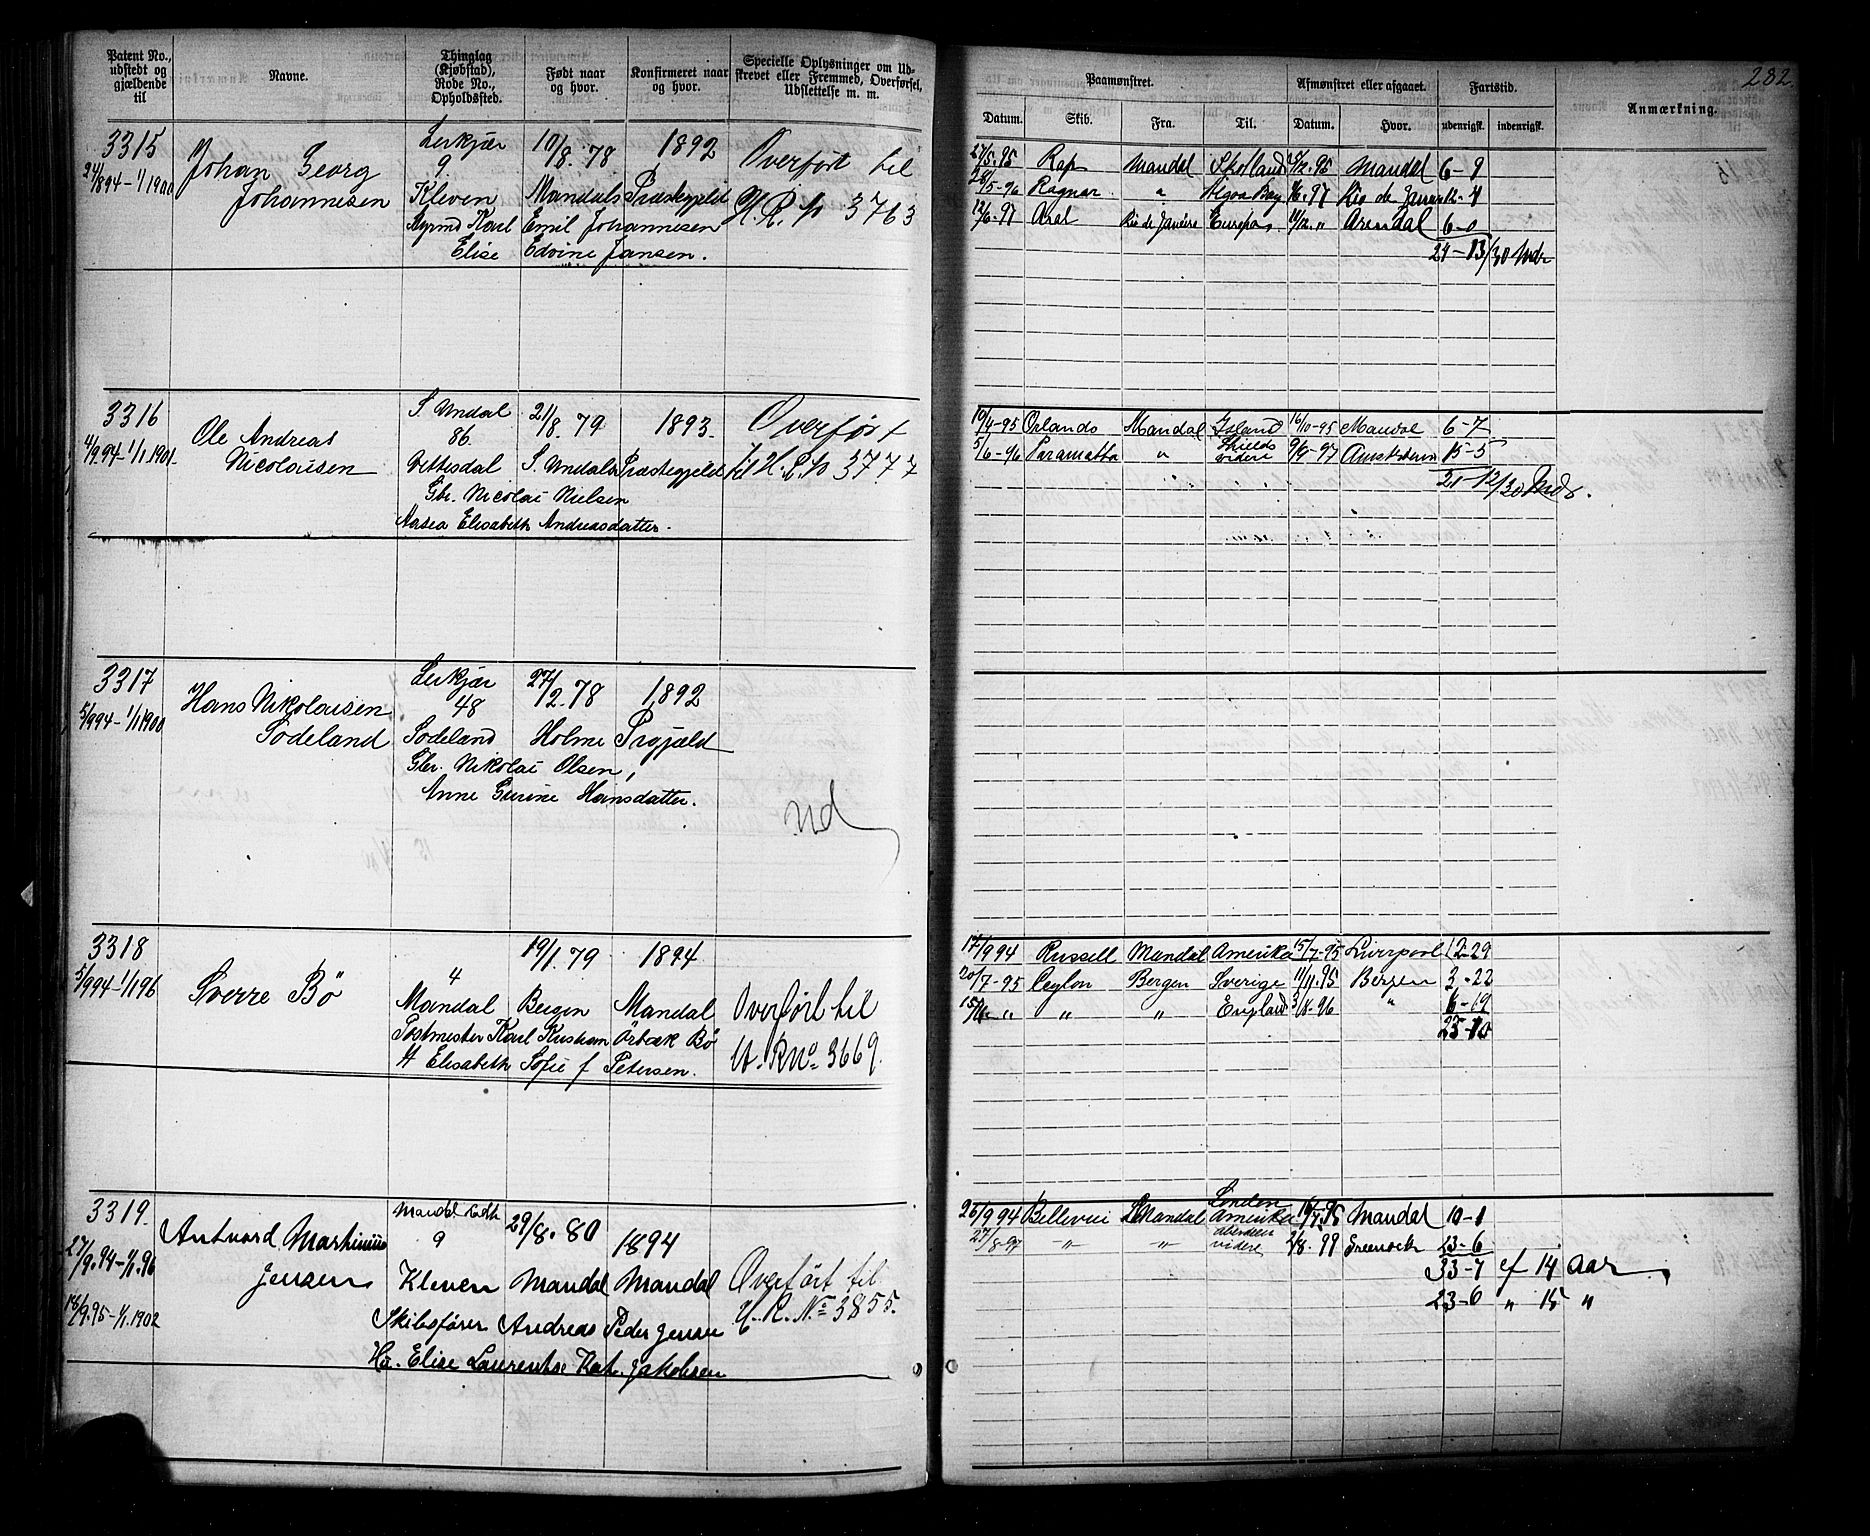 Patent No., udstedt og gjældende til
Navne.
Thinglag (Kjøbstad), Rode No., Opholdssted.
Født naar og hvor.
Konfirmeret naar og hvor.
Specielle Oplysninger om Udskrevet eller Fremmed, Overførsel, Udslettelse m. m.
Paamønstret.
Afmønstret eller afgaaet.
Fartstid.
Anmærkning.
282.
Datum. Skib. Fra. Til. Datum. Hvor. udenrigsk. indenrigsk.
3315
Johan Georg
Johannesen
9.
10/8. 78
1892
Kleven Mandals Præstegjeld
Emil Johannesen
Elise Edvine Jansen.
Overført til
H. R. No 3763
27/5. 95 Rap Mandal Skotland Mandal 6-9
28/5-96 Ragnar " Algoa Bay Rio de Janeiro
12/6. 97 Axel Rio de Janeiro Europa Arendal 6-0
24-13/30 Mdr
3316
4/9.94-1/1.1901.
Ole Andreas
Nicolaisen
S. Undal
86.
21/8. 79
1893.
Vittesdal S. Undals Præstegjeld
Gbr. Nicolai Nielsen
Aasea Elisabeth Andreasdatter.
Overført
til H. R. No 3777
19/4-95 Orlando Mandal Island 16/10-95 Mandal 6-7
5/6-96 Paramatta " Shields videre 9/9-97 Amsterdam 15-5
21-12/30 Mdr.
3317
5/994-1/1 1900
Hans Nikolaisen
Sodeland
48
27/2. 78
1892
Sodeland Holme Prgjæld
Gbr. Nikolai Olsen,
Anne Gurine Hansdatter.
ud
3318
5/994-1/196
Sverre Bö
4
19/1. 79
1894
Mandal Bergen Mandal
Postmester Karl Kristian Örbæk Bö
H Elisabeth Sofie f Petersen.
Overført til
H. R No. 3669.
17/994 Russell Mandal Amerika 15/7-95 Liverpool 12-29
20/7-95 Ceylon Bergen Sverige 11/11.95 Bergen 3-22
" " " England 3/8.96 " 6-19
23-10
3319.
27/9.94-1/1.96
18/9.95-1/1.1902
Antvord Martinius
Jensen
Mandal Ladst.
9
29/8. 80
1894
Kleven Mandal Mandal
Skibsfører Andreas Peder Jensen
Hu. Elise Laurentse Kat. Jakobsen
Overført til
H. R. No 3855.
26/9 94 Bellevue Mandal London Amerika Mandal 10-1
27/8-97 " " aberdeen videre 2/8. 99 Greenock 23-6
33-7 ef 14 Aar
23-6 " 15 "